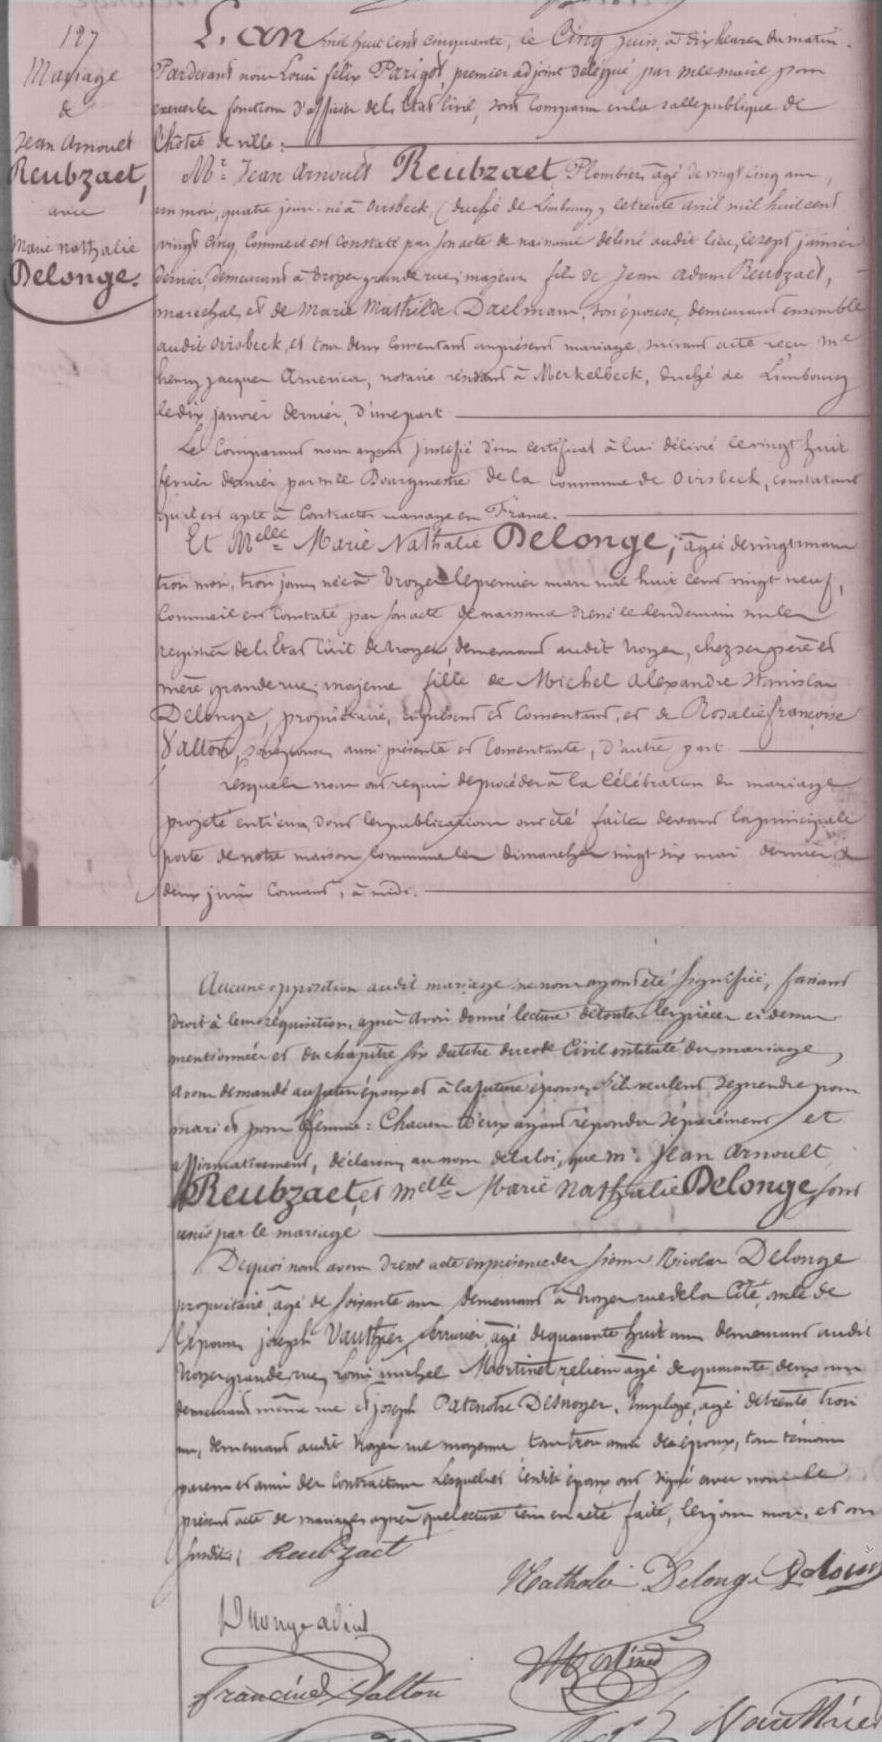 127
Mariage
de
Jean Arnoult
Reubzaet,
avec
Marie Nathalie
Delonge.
L'an mil huit cent cinquante, le Cinq juin, à dix heures du matin.
Pardevant nous Louis félix Parigot, premier adjoint délégué par mr le maire pour
exercer les fonctions d'officier de l'Etat Civil, sont comparus en la salle publique de
l'hôtel de ville:
Mr. Jean Arnoult Reubzaet Plombier, âgé de vingt cinq ans,
un mois, quatre jours, né à Oirsbeck, (duché de Limbourg) le trente avril mil huit cent
vingt cinq, Comme il est constaté par son acte de naissance délivré audit lieu, le sept janvier
dernier, demeurant à troyes grande rue, majeur fils de Jean Adam Reubzaet,
maréchal, et de Marie Mathilde Daelmans, son épouse, demeurant ensemble
audit Oirsbeck, et tous deux Consentant au présent mariage, suivant acte reçu me
henry jacques America, notaire résidant à Merkelbeck, duché de Limbourg
le dix janvier dernier, d'une part
Le Comparant nous ayant justifié d'un certificat à lui délivré le vingt huit
février dernier par mr le Bourgmestre de la Commune de Oirsbeck, constatant
qu'il est apte à Contracter mariage en France.
Et Melle Marie Nathalie Delonge, âgée de vingt un ans
trois mois, trois jours, née à troyes le premier mars mil huit cent vingt neuf,
Comme il est Constaté par son acte de naissance dressé le lendemain sur les
registres de l'Etat Civil de troyes, demeurant audit troyes, chez ses père et
mère grande rue; majeure fille de Michel Alexandre Stanislas
Delonge, propriétaire, ici présent et Consentant, et de Rosalie françoise
Valton, son épouse, aussi présente et Consentante, d'autre part
Lesquels nous ont requis de procéder à la célébration du mariage
projeté entr'eux, dont les publications ont été faites devant la principale
porte de notre maison Commune les dimanches vingt six mai dernier et
deux juin Courant, à midi.
Aucune opposition audit mariage ne nous ayant été signifiée, faisant
droit à leur réquisition, après avoir donné lecture de toutes les pièces ci dessus
mentionnées et du chapitre six du titre du code Civil intitulé du mariage,
avons demandé au futur époux et à la future épouse, s'ils veulent se prendre pour
mari et pour femme: Chacun d'eux ayant répondu séparément et
affirmativement, déclarons, au nom de la loi, que mr. Jean Arnoult
Reubzaet, et melle Marie Nathalie Delonge sont
unis par le mariage
De quoi nous avons dressé acte en présence des sieurs Nicolas Delonge
propriétaire, âgé de soixante ans demeurant à troyes rue de la Cité, oncle de
l'épouse, joseph Vauthier, serrurier, âgé de quarante huit ans demeurant audit
troyes grande rue, Louis michel Mortinet, relieur âgé de quarante deux ans
demeurant même rue et joseph Patenotre Desnoyer, Employé, âgé de trente trois
ans, demeurant audit troyes rue moyenne tous trois amis des époux, tous témoins
parens et amis des Contractans Lesquels et lesdits époux ont signé avec nous le
présent acte de mariage après que lecture leur en a été faite, les jour, mois, et an
susdits;
Reubzaet
Nathalie Delonge
Francine Valton
Mortinet
Vauthier